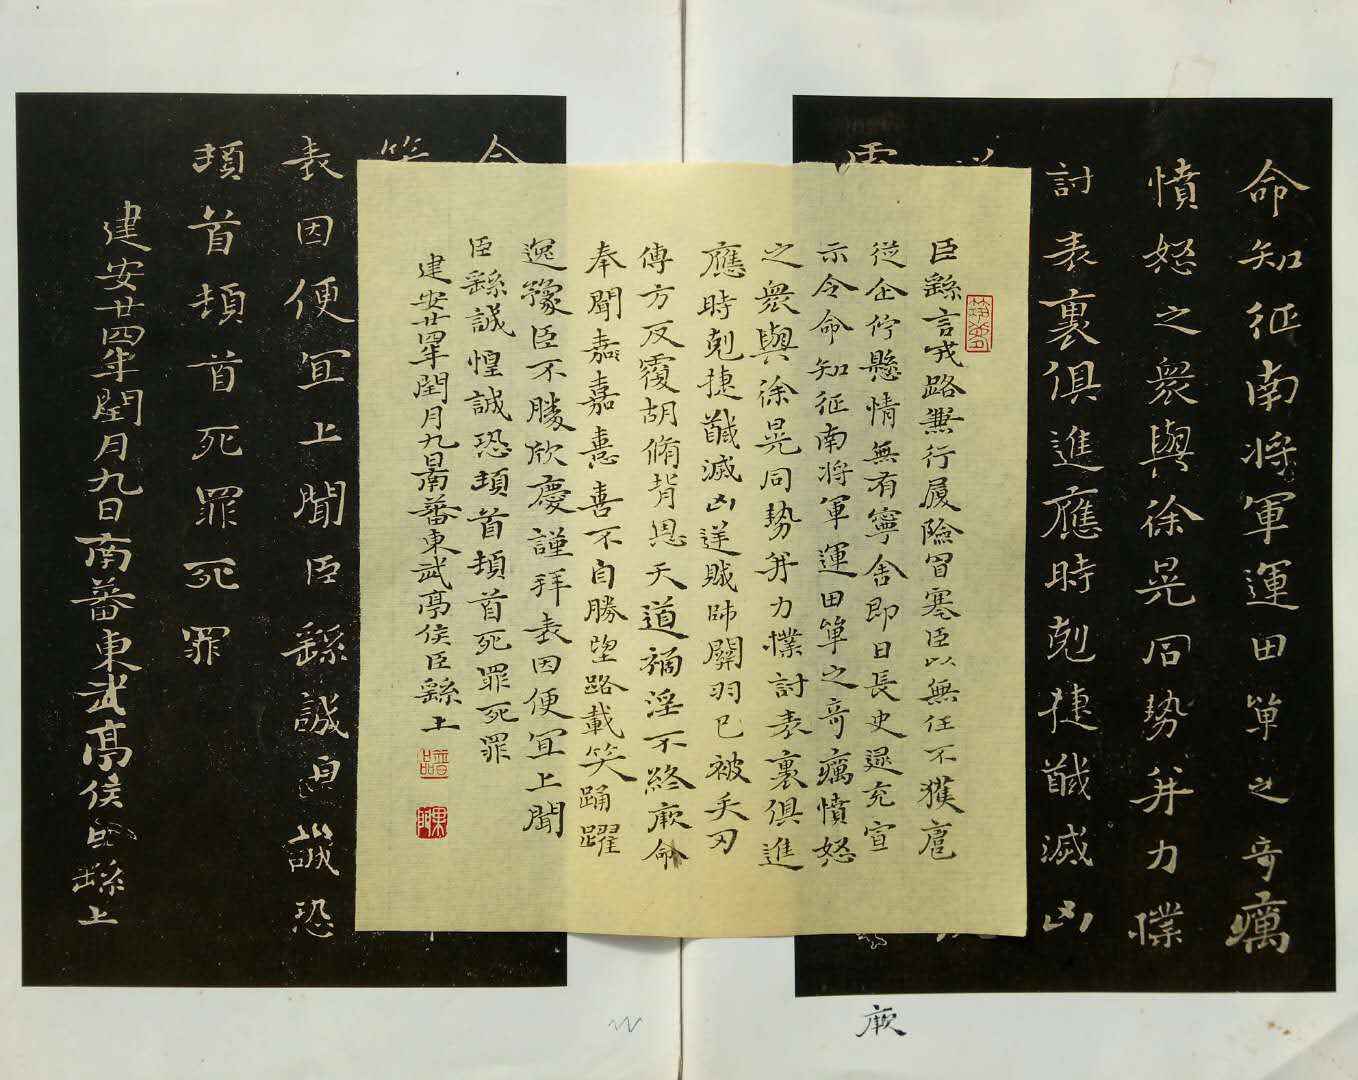 命知征南將軍運田單之奇厲
憤怒之眾與徐晃同勢并力㩧
討表裏俱進應時剋捷馘滅凶
臣繇言戎路兼行履險冒寒臣以無任不獲扈
從企佇懸情無有寧舍即日長史逯充宣
示令命知征南將軍運田單之奇厲憤怒
之眾與徐晃同勢并力㩧討表裏俱進
應時剋捷馘滅凶逆賊帥關羽已被矢刃
傅方反覆胡脩背恩天道禍淫不終厥命
奉聞嘉嘉憙喜不自勝望路載笑踊躍
逸豫臣不勝欣慶謹拜表因便宜上聞
臣繇誠惶誠恐頓首頓首死罪死罪
建安廿四年閏月九日南蕃東武亭侯臣繇上
表因便宜上聞臣繇誠皇誠恐
頓首頓首死罪死罪
建安廿四年閏月九日南蕃東武亭侯臣繇上
厥